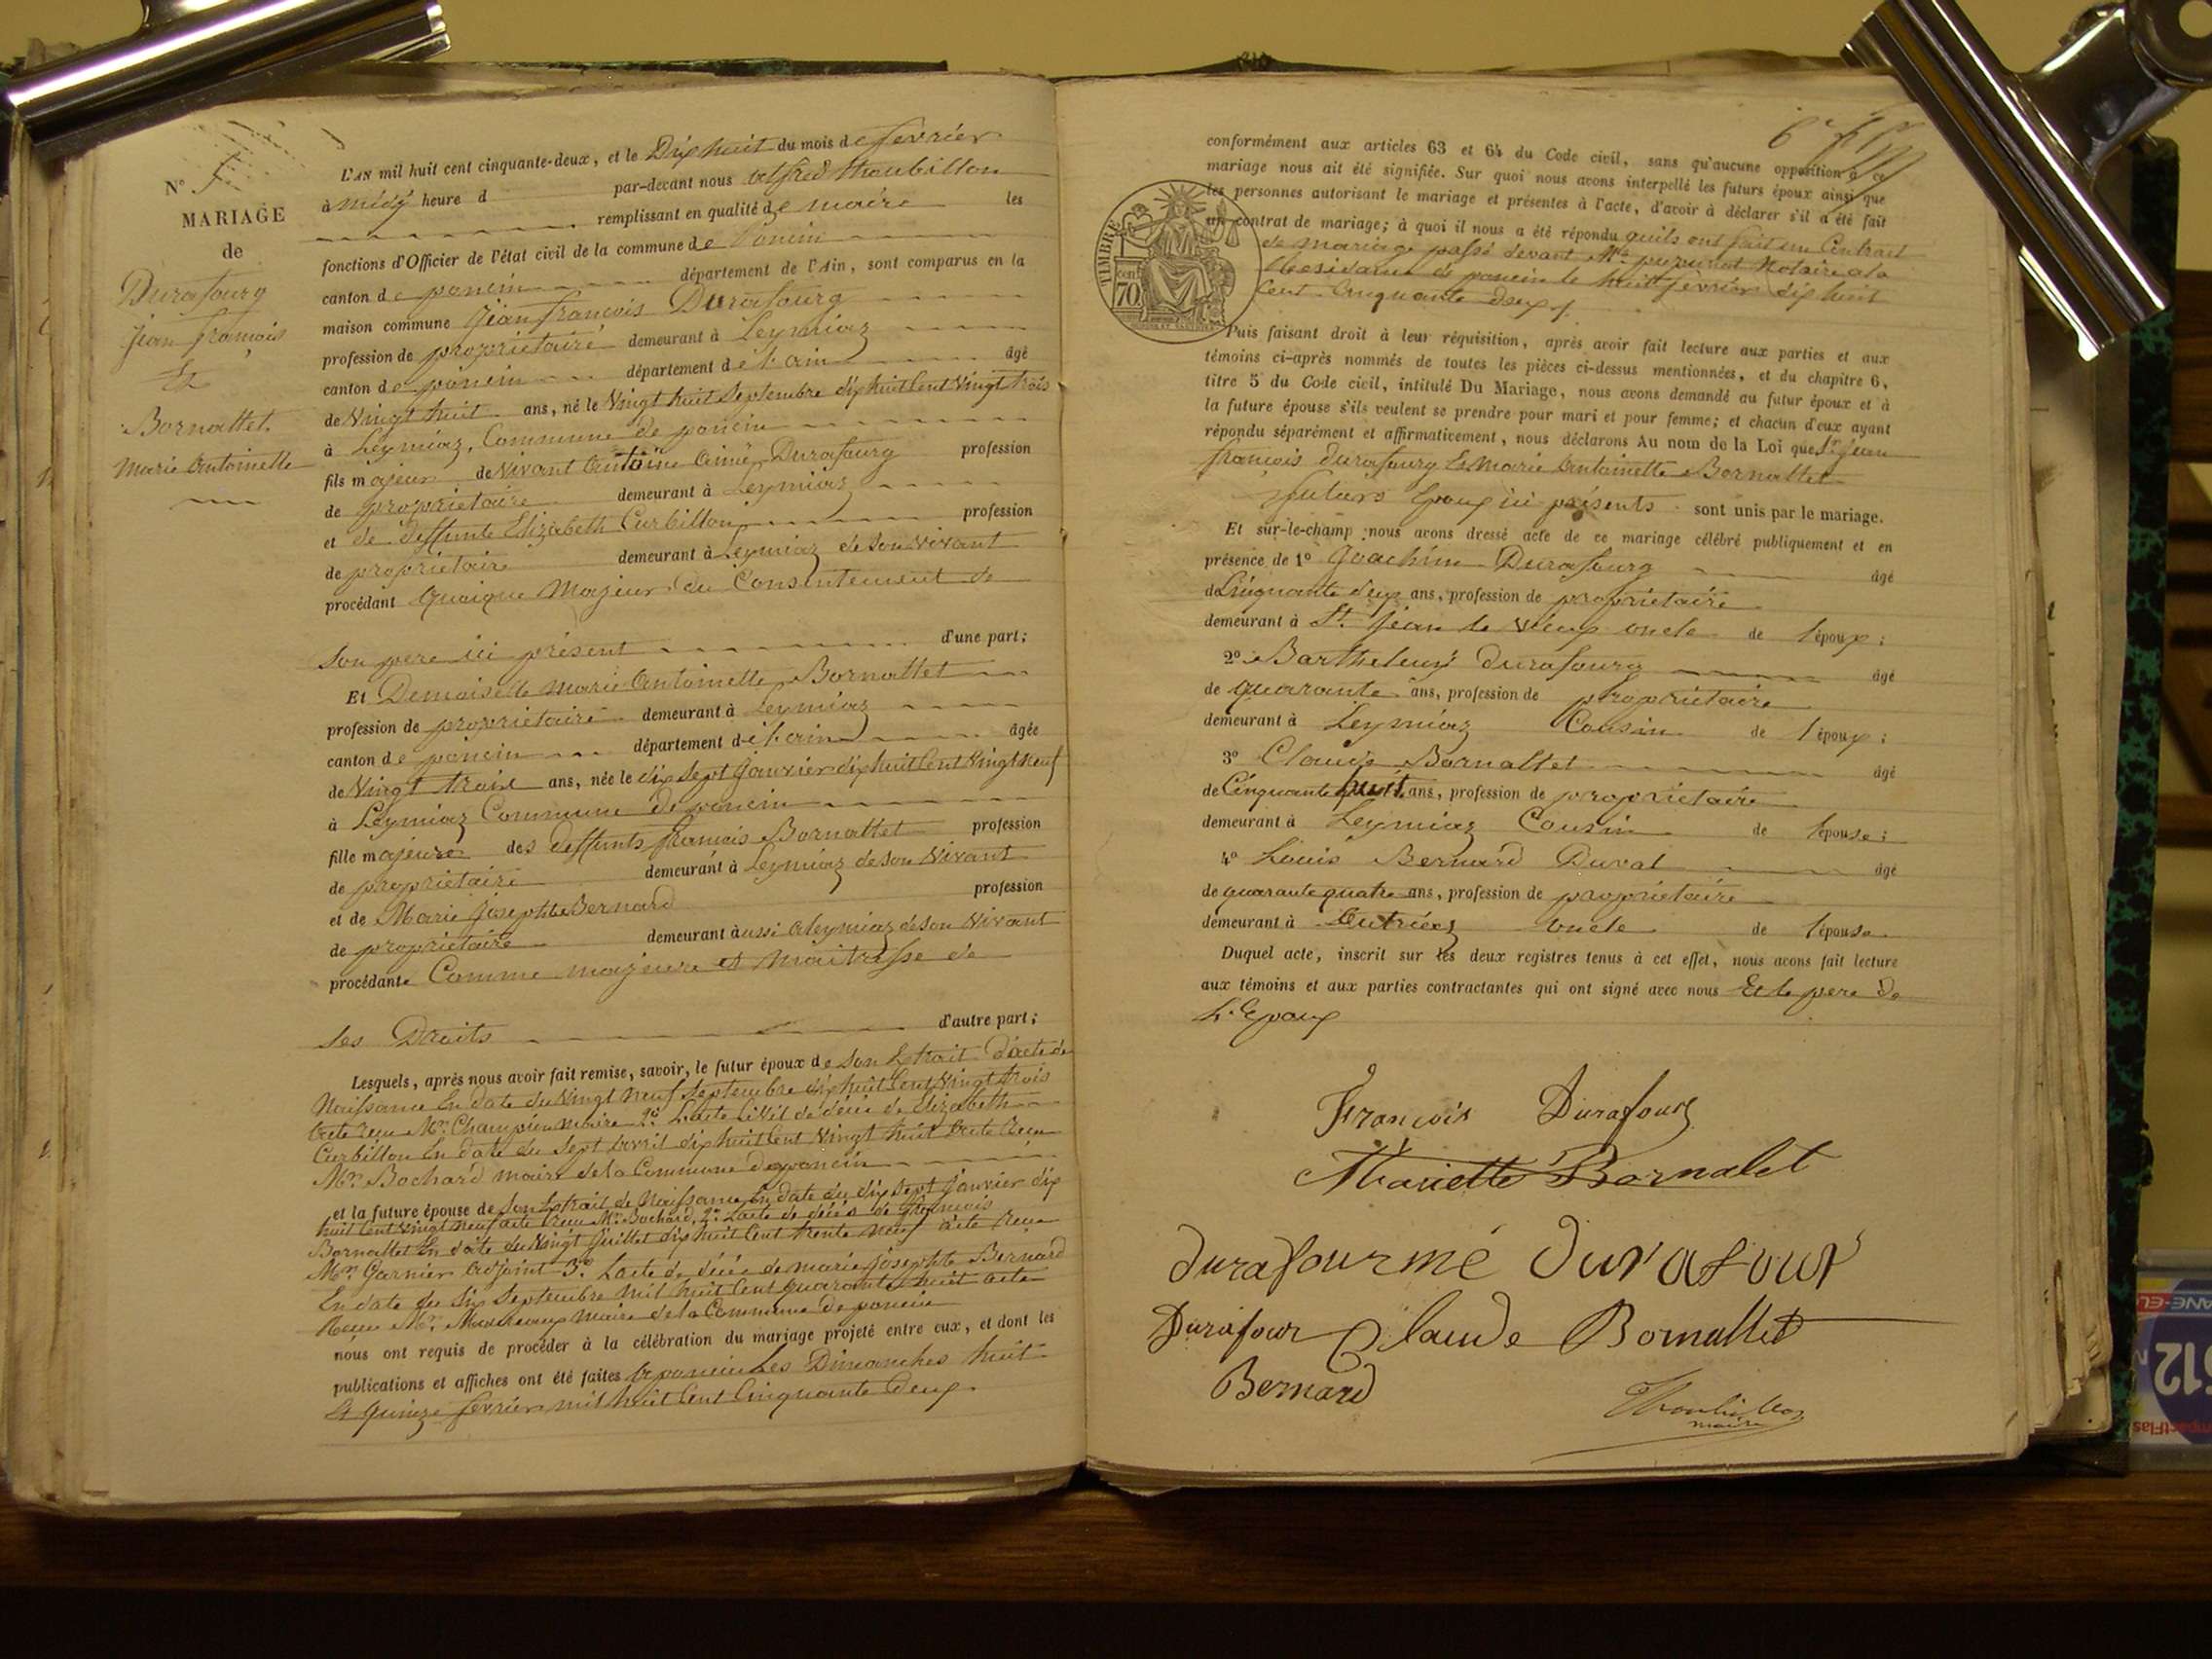 N° 5
MARIAGE
de
Durafourg
jean françois
Et
Bornattet
Marie Antoinette
L'AN mil huit cent cinquante-deux, et le Dix huit du mois de fevrier
à midy heure d par-devant nous alfred thoubillon
remplissant en qualité de maire les
fonctions d'Officier de l'état civil de la commune de Poncin
canton de poncin département de l'Ain, sont comparus en la
maison commune jean françois Durafourg
profession de propriétaire demeurant à Leymiaz
canton de poncin département de l'ain âgé
de Vingt huit ans, né le Vingt huit Septembre dix huit Cent Vingt trois
à Leymiaz, Commune de poncin
fils majeur de vivant Antoine Aimé Durafourg profession
de propriétaire demeurant à Leymiaz
et de deffunte Elizabeth Curbillon profession
de propriétaire demeurant à Leymiaz de son vivant
procédant quoique Majeur du Consentement de
son pere ici présent d'une part;
Et Demoiselle marie Antoinette Bornattet
profession de propriétaire demeurant à Leymiaz
canton de poncin département de l'ain âgée
de Vingt trois ans, née le dix sept Janvier dix huit Cent Vingt neuf
à Leymiaz Commune de poncin
fille majeure des deffunts françois Bornattet profession
de propriétaire demeurant à Leymiaz de son Vivant
et de Marie Josephte Bernard profession
de propriétaire demeurant aussi a leymiaz de son vivant
procédante Comme majeure et maitresse de
ses Droits d'autre part;
Lesquels, après nous avoir fait remise, savoir, le futur époux de son Extrait d'acte de
Naissance En date du Vingt neuf Septembre dix huit Cent Vingt trois
Acte reçu Mr. Champion maire 2° Lacte Civil de décès de Elizabeth
Curbillon En date du Sept avril dix huit Cent Vingt huit Acte Reçu
Mr. Bochard maire de la Commune de poncin
et la future épouse de Son Extrait de Naissance En date du dix sept janvier dix
huit Cent Vingt neuf acte Reçu Mr. Bochard, 2° Lacte de décès de françois
Bornattet En date du Vingt Juillet dix huit Cent trente neuf acte Reçu
Mr. Garnier Adjoint 3° Lacte de décès de marie Josephte Bernard
En date du Six Septembre mil huit Cent quarante huit acte
Reçu Mr. maire de la Commune de poncin
nous ont requis de procéder à la célébration du mariage projeté entre eux, et dont les
publications et affiches ont été faites a poncin Les Dimanches huit
Et quinze fevrier mil huit Cent Cinquante deux
conformément aux articles 63 et 64 du Code civil, sans qu'aucune opposition à ce
mariage nous ait été signifiée. Sur quoi nous avons interpellé les futurs époux ainsi que
les personnes autorisant le mariage et présentes à l'acte, d'avoir à déclarer s'il a été fait
un contrat de mariage; à quoi il nous a été répondu quils ont fait un Contrat
de mariage passé devant Mr. Notaire a la
Residence de poncin le huit fevrier dix huit
Cent Cinquante deux
TIMBRE
70
Puis faisant droit à leur réquisition, après avoir fait lecture aux parties et aux
témoins ci-après nommés de toutes les pièces ci-dessus mentionnées, et du chapitre 6,
titre 5 du Code civil, intitulé Du Mariage, nous avons demandé au futur époux et à
la future épouse s'ils veulent se prendre pour mari et pour femme; et chacun d'eux ayant
répondu séparément et affirmativement, nous déclarons Au nom de la Loi que Sr. Jean
françois Durafourg Et Marie Antoinette Bornattet
futurs Epoux ici présents sont unis par le mariage.
Et sur-le-champ nous avons dressé acte de ce mariage célébré publiquement et en
présence de 1° Joachim Durafourg âgé
de Cinquante deux ans, profession de propriétaire
demeurant à St. Jean le vieux oncle de l'époux;
2° Barthelemy Durafourg âgé
de quarante ans, profession de propriétaire
demeurant à Leymiaz Cousin de l'époux;
3° Claude Bornattet âgé
de Cinquante huit ans, profession de propriétaire
demeurant à Leymiaz Cousin de l'épouse;
4° Louis Bernard Duval âgé
de quarante quatre ans, profession de propriétaire
demeurant à oncle de l'épouse.
Duquel acte, inscrit sur les deux registres tenus à cet effet, nous avons fait lecture
aux témoins et aux parties contractantes qui ont signé avec nous Et le pere de
L'Epoux
François Durafourg
Mariette Bornalet
durafour mé durafour
Durafour Claude Bornattet
Bernard
Thoubillon
maire